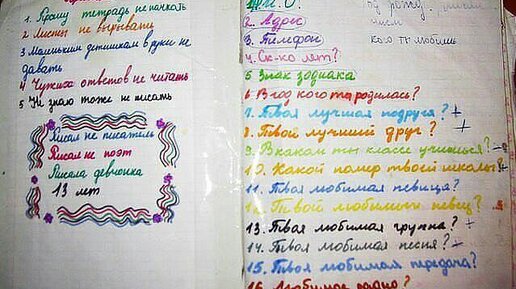 1. Прошу тетрадь не пачкать
2 Листы не вырывать
3 Маленьким детишкам в руки не
давать
4 Чужих ответов не читать
5 Не знаю тоже не писать
Писал не писатель
Писал не поэт
Писала девчонка
13 лет
2. Адрес
3. Телефон
4. Ск-ко лет?
5 Знак зодиака
6 В год кого ты родилась?
7. Твоя лучшая подруга? +
8. Твой лучший друг? +
9. В каком ты классе учишься?
10. Какой номер твоей школы?
11. Твоя любимая певица?
12. Твой любимый певец?
13. Твоя любимая группа? +
14. Твоя любимая песня? +
15. Твоя любимая передача?
16. Любимое радио?
кого ты любишь